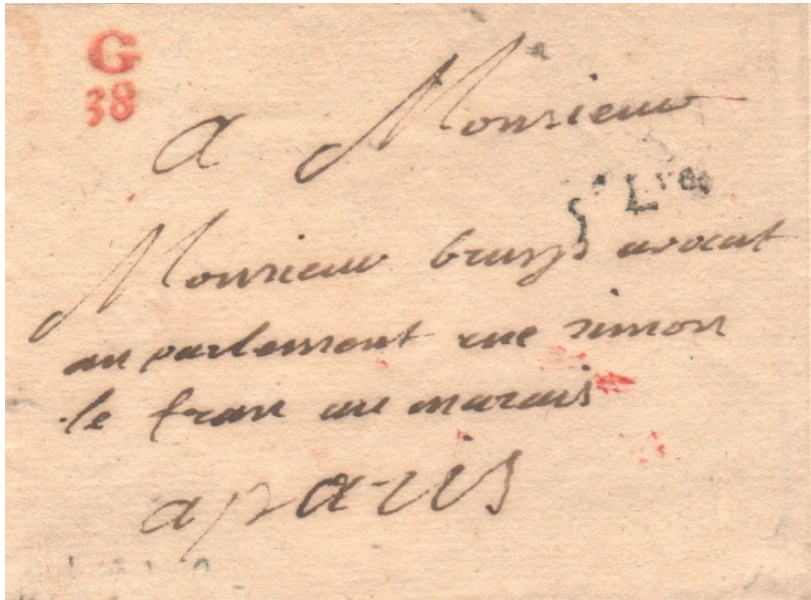 G
38
a Monsieur
Monsieur bruys avocat
au parlement rue simon
le fran au marais
a paris